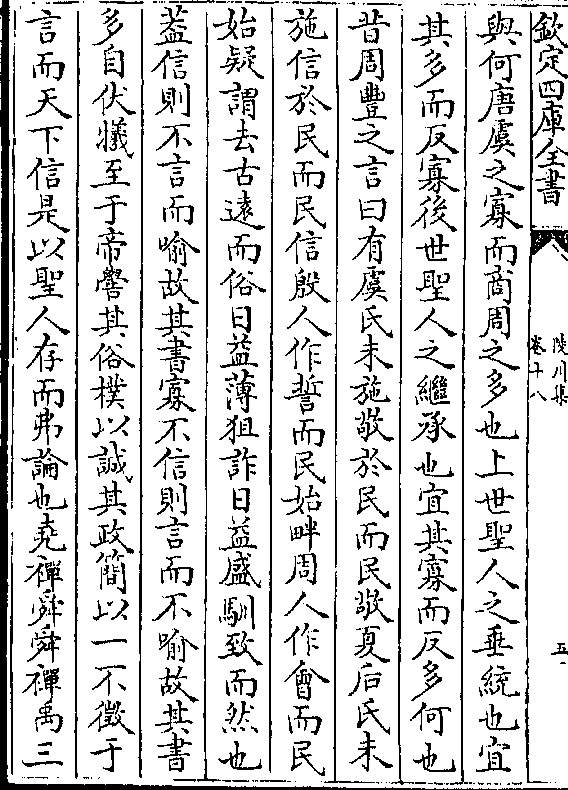 欽定四庫全書
陵川集
卷十八
五
與何唐虞之寡而商周之多也上世聖人之垂統也宜
其多而反寡後世聖人之繼承也宜其寡而反多何也
昔周豐之言曰有虞氏未施敬於民而民敬夏后氏未
施信於民而民信殷人作誓而民始畔周人作㑹而民
始疑謂去古逺而俗日益薄狙詐日益盛馴致而然也
葢信則不言而喻故其書寡不信則言而不喻故其書
多自伏犧至于帝嚳其俗樸以誠其政簡以一不徴于
言而天下信是以聖人存而弗論也堯禪舜舜禪禹三